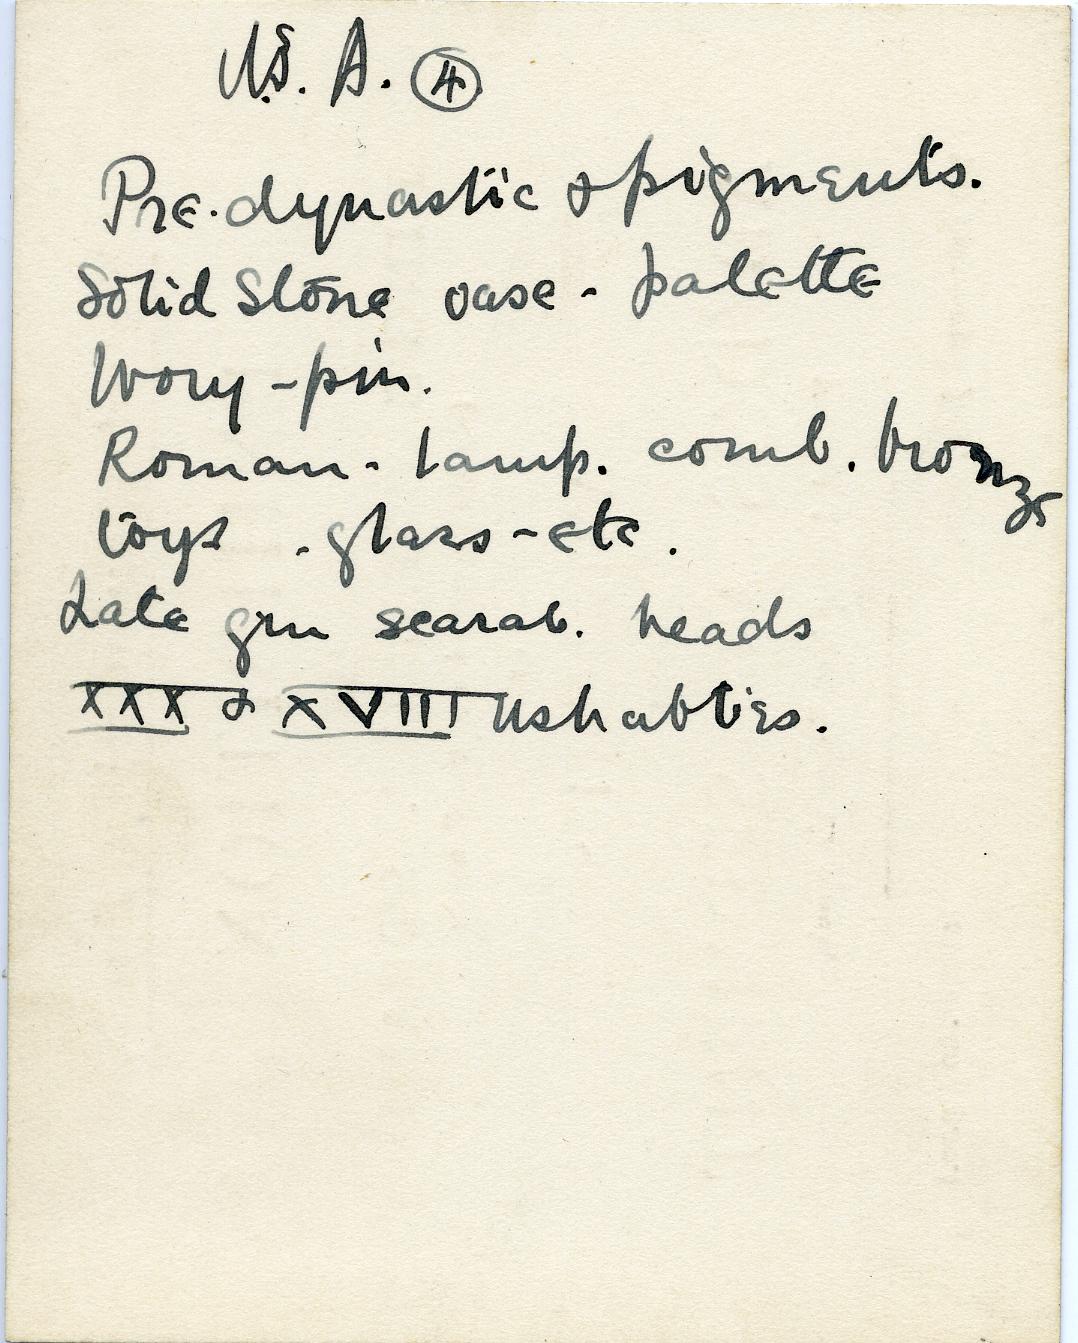 U.S. A. ④
Pre-dynastic & pigments.
Solid Stone vase - palette
Ivory - pin.
Roman - lamp. comb. bronze
toys - glass - etc.
Late scarab. heads
XXX & XVIII Ushabties.